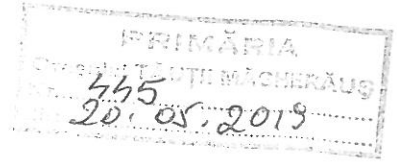 PRIMĂRIA
TĂUȚII MĂGHERĂUȘ
445
20. 05. 2019